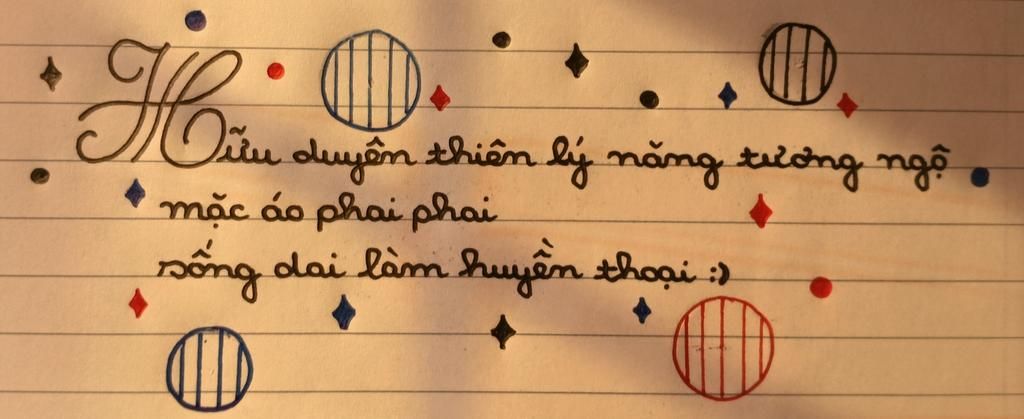 Hữu duyên thiên lý năng tương ngộ
mặc áo phai phai
sống dai làm huyền thoại :)